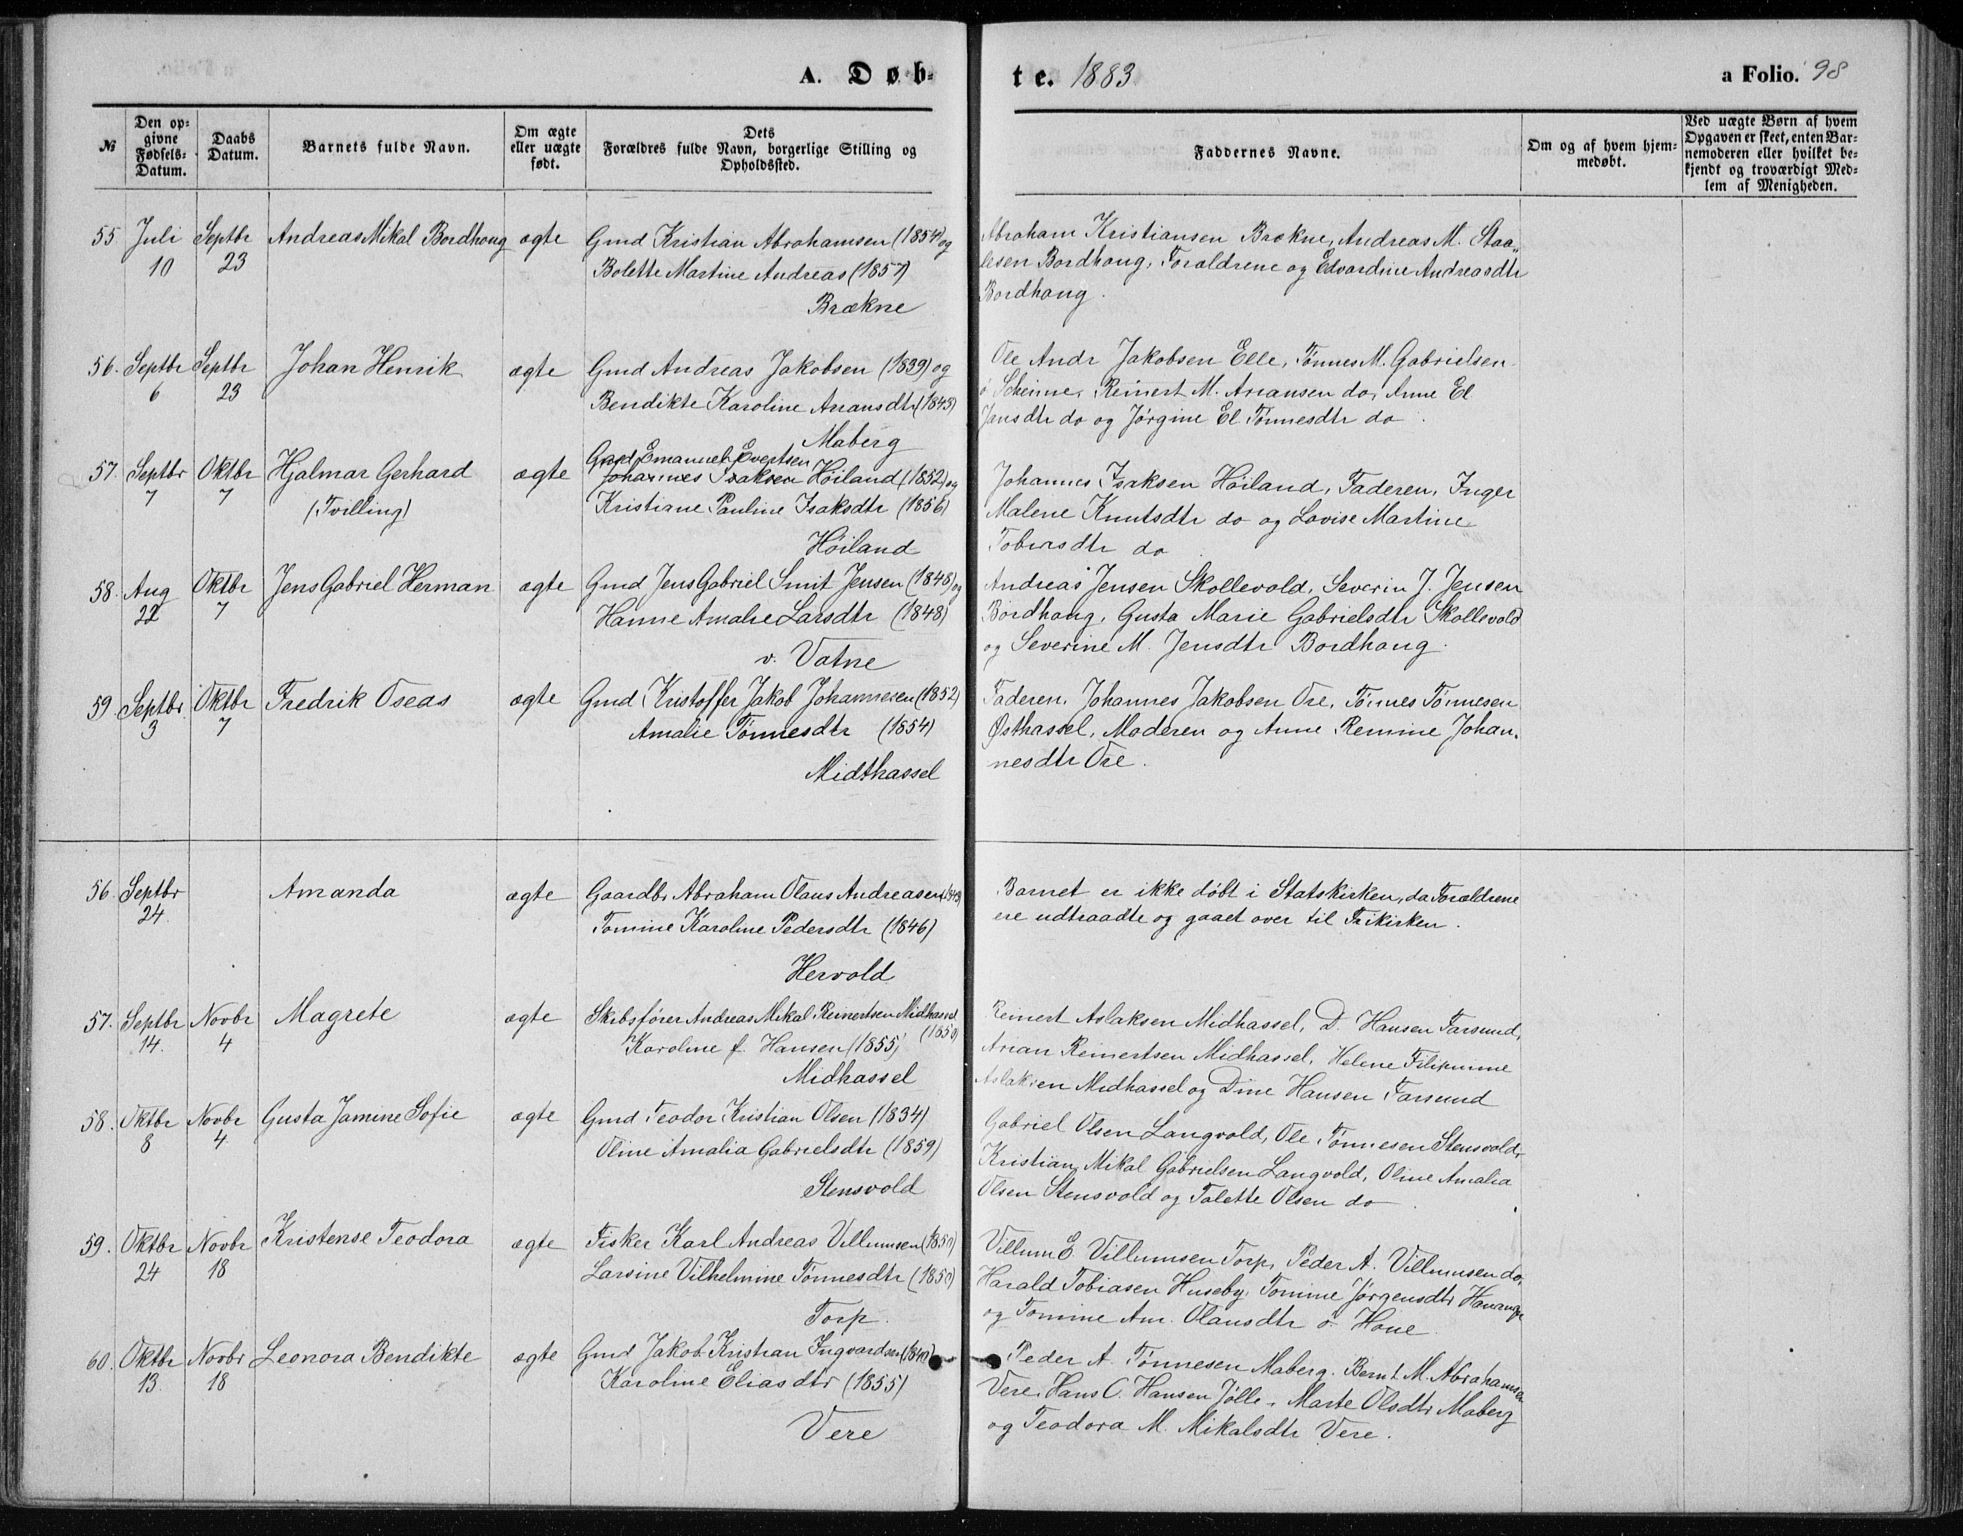 A. Døb-
te. 1883
a Folio. 98
№
Den op-
givne
Fødsels-
Datum.
Daabs
Datum.
Barnets fulde Navn.
Om ægte
eller uægte
født.
Dets
Forældres fulde Navn, borgerlige Stilling og
Opholdssted.
Faddernes Navne.
Om og af hvem hjem-
medøbt.
Ved uægte Børn af hvem
Opgaven er skeet, enten Bar-
nemoderen eller hvilket be-
kjendt og troværdigt Med-
lem af Menigheden.
55 Juli 10 Septbr 23 Andreas Mikal Bordhaug ægte Gmd Kristian Abrahamsen (1854) og
Bolette Martine Andreas (1857)
Brækne
Abraham Kristiansen Brækne, Andreas M. Staa-
lesen Bordhaug, Forældrene og Edvardine Andreasdtr
Bordhaug.
56. Septbr 6 Septbr 23 Johan Henrik ægte Gmd Andreas Jakobsen (1839) og
Bendikte Karoline Ariansdtr (1845)
Maberg
Ole Andr Jakobsen Elle, Tønnes M. Gabrielsen
ø Skeime, Reinert M. Ariansen do, Anne El
Jansdtr do og Jørgine El Tønnesdtr do.
57. Septbr 7 Oktbr 7 Hjalmar Gerhard ægte
(Tvilling)
Gmd Emanuel Evertsen
Johannes Isaksen Høiland (1852) og
Kristiane Pauline Isaksdtr (1856)
Høiland
Johannes Isaksen Høiland, Faderen, Inger
Malene Knutsdtr do og Lovise Martine
Tobiasdtr do
58. Aug 22 Oktbr 7 Jens Gabriel Herman ægte Gmd Jens Gabriel Smit Jensen (1848) og
Hanne Amalie Larsdtr (1848)
v. Vatne
Andreas Jensen Skollevold, Severin J. Jensen
Bordhaug, Gusta Marie Gabrielsdtr Skollevold
og Severine M. Jensdtr Bordhaug.
59 Septbr 3 Oktbr 7 Fredrik Oseas ægte Gmd Kristoffer Jakob Johannesen (1852)
Amalie Tønnesdtr (1854)
Midthassel
Faderen, Johannes Jakobsen Ore, Tønnes Tønnesen
Østhassel, Moderen og Anne Remine Johan-
nesdtr Ore.
56 Septbr 24 Amanda ægte Gaardbr Abraham Olaus Andreasen (1843)
Tomine Karoline Pedersdtr (1846)
Hervold
Barnet er ikke døbt i Statskirken, da Forældrene
ere udtraadte og gaaet over til Frikirken.
57. Septbr 14. Novbr 4 Magrete ægte Skibsfører Andreas Mikal Reinertsen Midhassel
(1850)
Karoline f. Hansen (1855)
Midhassel
Reinert Aslaksen Midhassel, D. Hansen Farsund,
Arian Reinertsen Midhassel, Helene Filipinine
Aslaksen Midhassel og Dine Hansen Farsund
58. Oktbr 8 Novbr 4 Gusta Jamine Sofie ægte Gmd Teodor Kristian Olsen (1834)
Oline Amalia Gabrielsdtr (1859)
Stensvold
Gabriel Olsen Langvold, Ole Tønnesen Stensvold,
Kristian Mikal Gabrielsen Langvold, Oline Amalia
Olsen Stensvold og Talette Olsen do
59. Oktbr 24 Novbr 18 Kristense Teodora ægte Fisker Karl Andreas Villumsen (1850)
Larsine Vilhelmine Tønnesdtr (1850)
Torp.
Villum E. Villumsen Torp, Peder A. Villumsen do,
Harald Tobiasen Huseby, Tomine Jørgensdtr Hananger
og Tomine Am. Olausdtr ø Haue
60. Oktbr 13 Novbr 18 Leonora Bendikte ægte Gmd Jakob Kristian Ingvardsen (1840)
Karoline Eliasdtr (1855)
Vere
Peder A Tønnesen Maberg. Bernt M. Abrahamsen
Vere, Hans C. Hansen Jølle, Marte Olsdtr Maberg
og Teodora M. Mikalsdtr Vere.